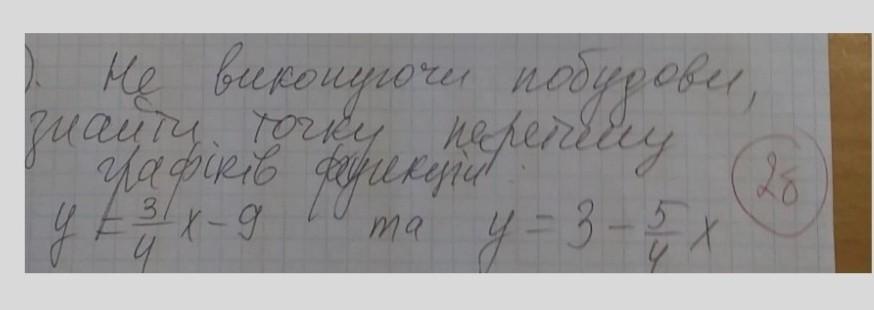 ). Не виконуючи побудови,
знайти точку перетину
графіків функцій:
y = 3/4 x - 9 та y = 3 - 5/4 x
2б